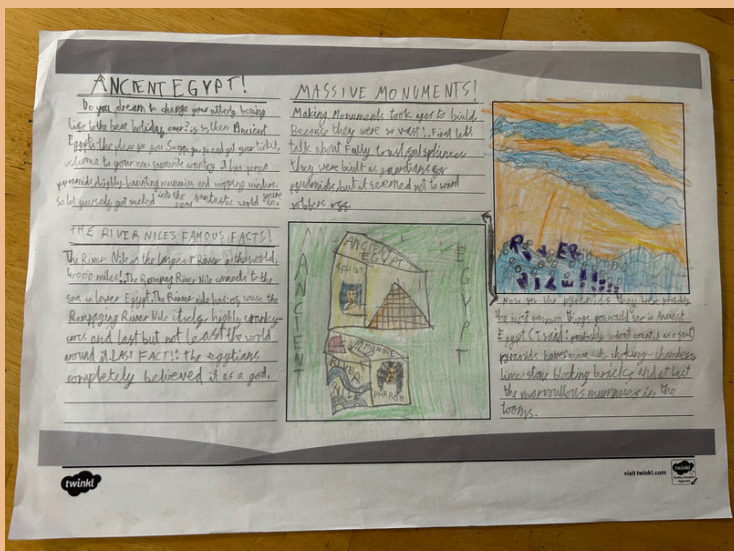 ANCIENT EGYPT!
Do you dream to change your utterly boring
life to the best holiday ever? is so then Ancient
Egypt's the place for you. So go and get your ticket,
welcome to your new favourite country it has
pyramids, highly haunting mummies and
so let yourself get sucked into the new fantastic world
THE RIVER NILE'S FAMOUS FACTS!
The River Nile is the largest River in the world,
4,000 miles! The Rampaging River Nile connects to the
sea in lower Egypt. The River nile has
Rampaging River Nile itself, highly cranky
crocs and last but not least the world
around it. LAST FACT!! the egyptians
completely believed it as a god.
MASSIVE MONUMENTS!
Making Monuments took ages to build
Because they were so vast!. First let's
talk about
they were built as guardians for
pyramids but it seemed not to ward
robbers off.
ANCIENT
EGYPT
ANCIENT
EGYPT
SPHINX
RIVER
NILE
PHAROH
RIVER
NILE!!!!
Now for the pyramids they were probably
the most common things you would see in Ancient
Egypt (I said probably so dont count it as a seal)
pyramids have
slow blocking bricks and at last
the marvoullous mummies in the
tooms.
twinkl
visit twinkl.com
twinkl